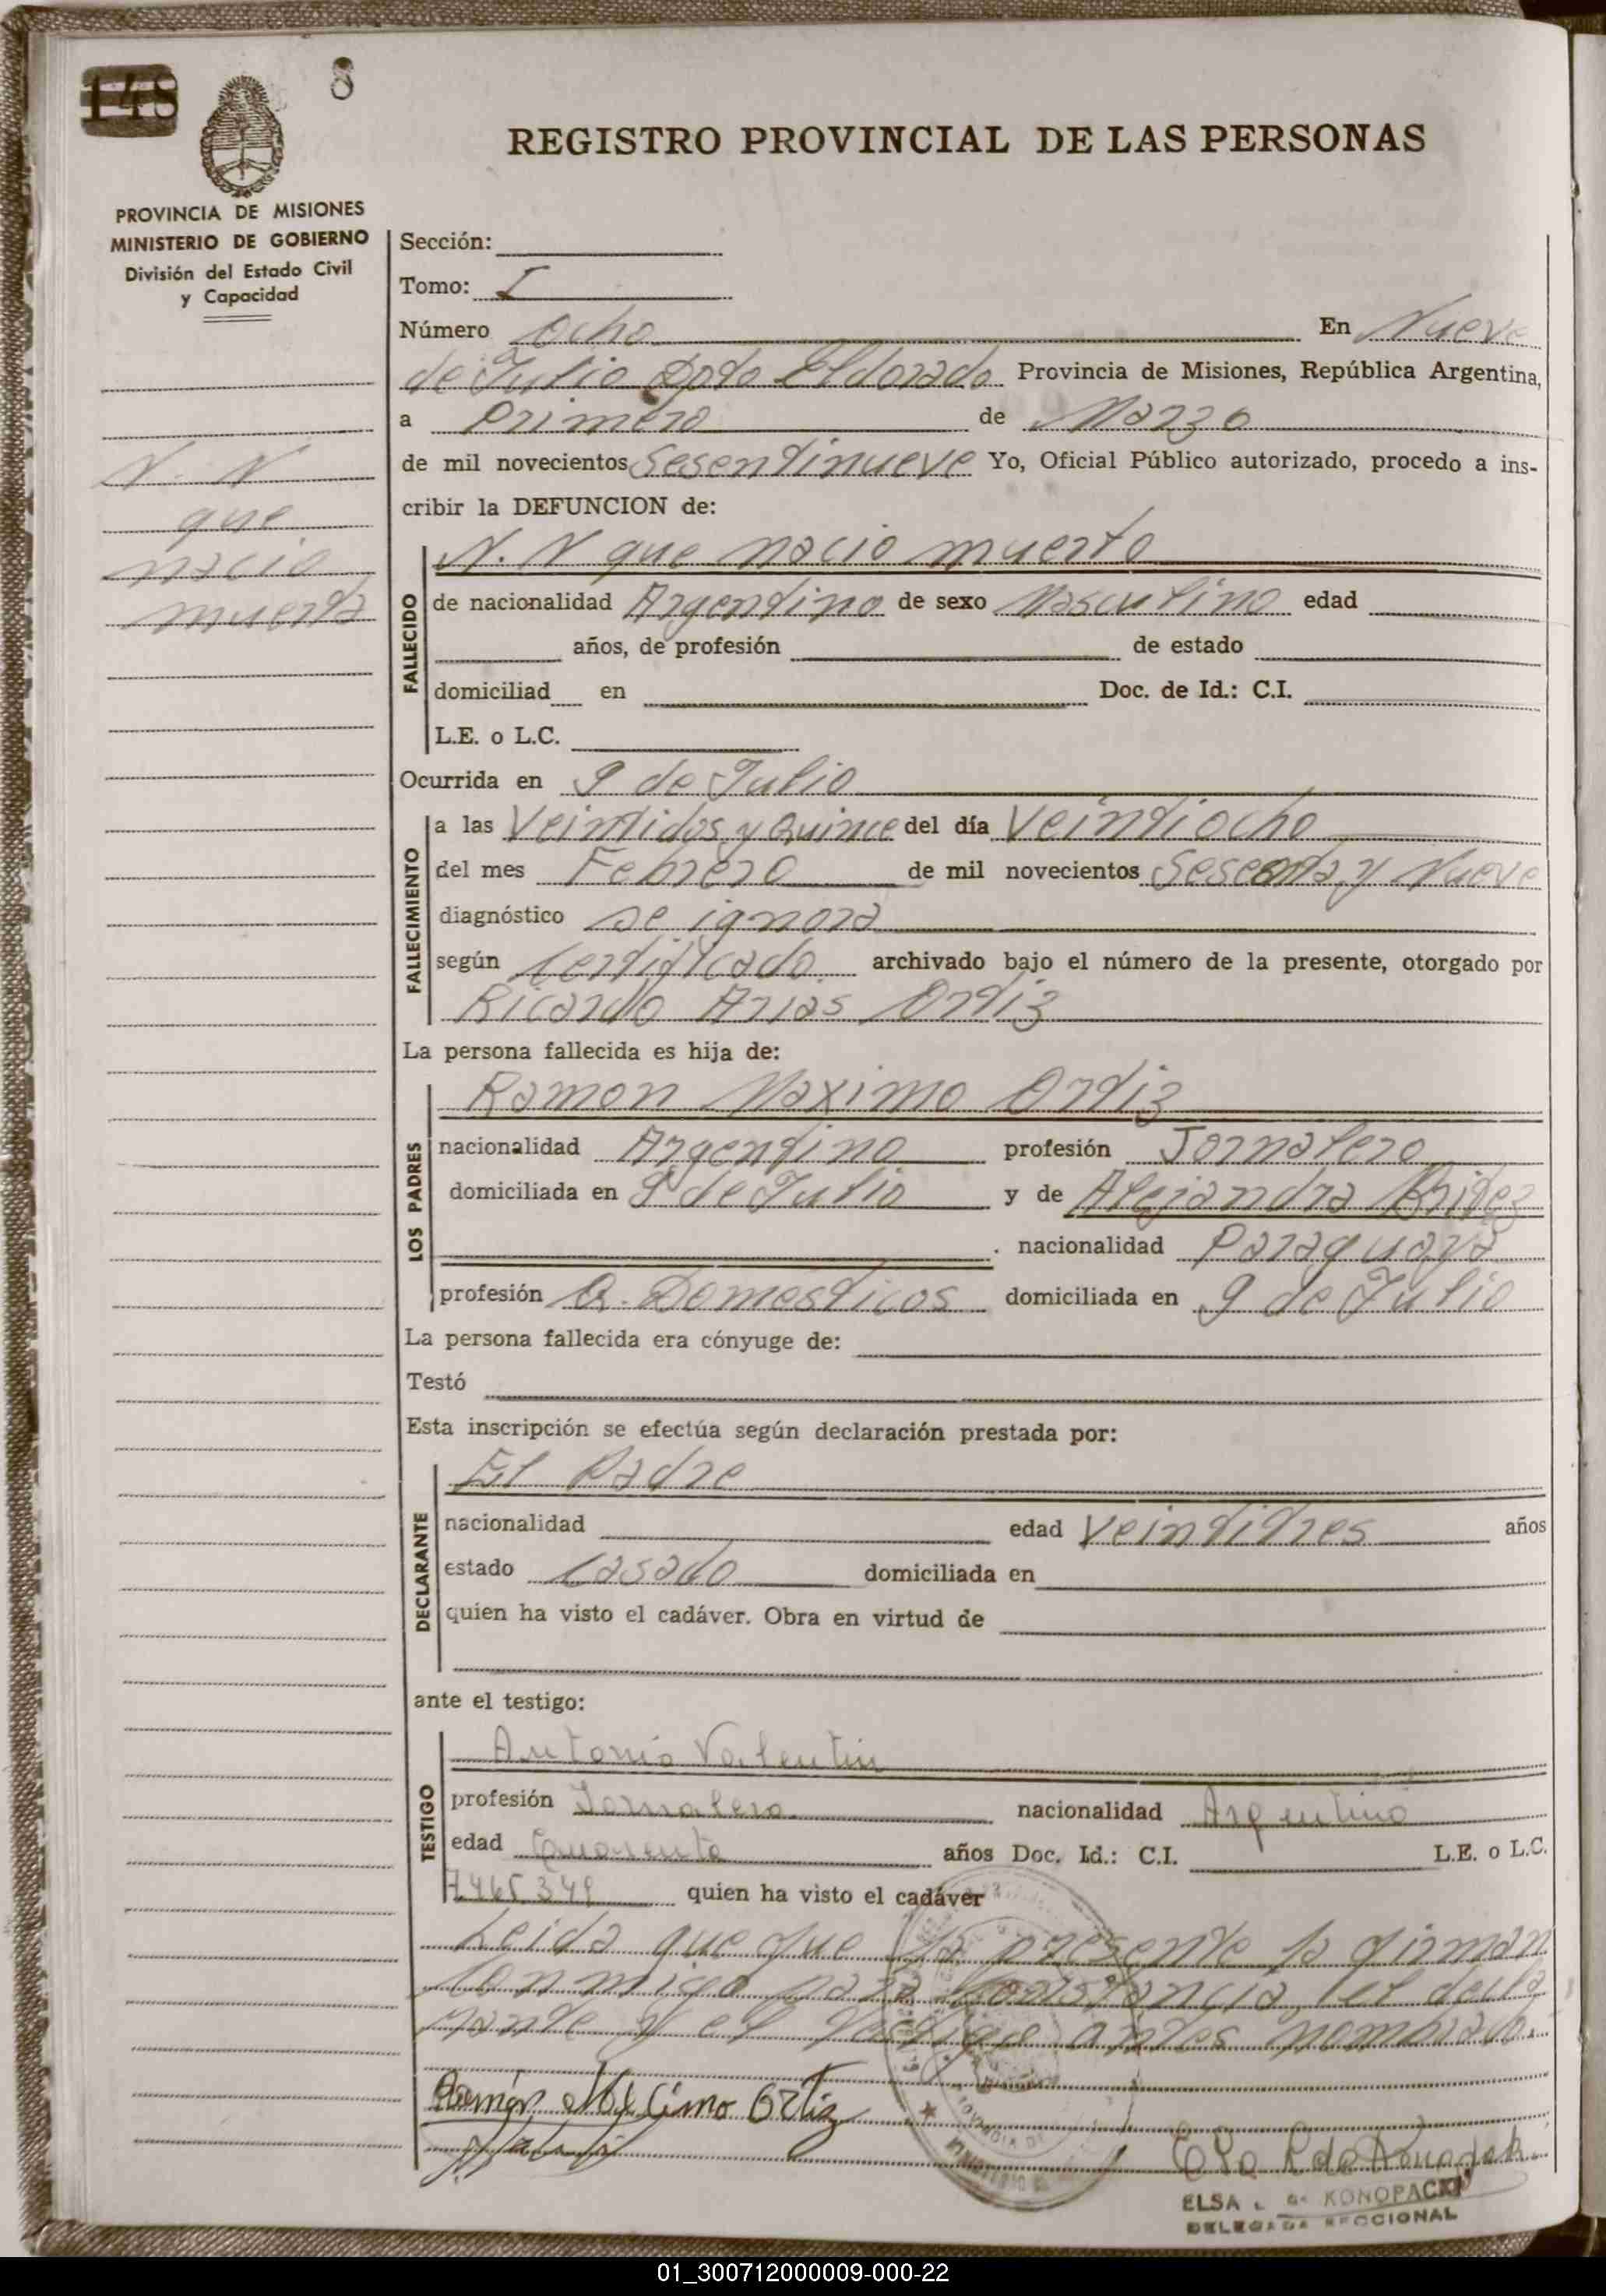 148
8
REGISTRO PROVINCIAL DE LAS PERSONAS
PROVINCIA DE MISIONES
MINISTERIO DE GOBIERNO
División del Estado Civil
y Capacidad
N. N
que
nacio
muerto
Sección:
Tomo: I
Número Ocho En Nueve
de Julio Dpto Eldorado Provincia de Misiones, República Argentina,
a Primero de Marzo
de mil novecientos Sesentinueve Yo, Oficial Público autorizado, procedo a ins-
cribir la DEFUNCION de:
FALLECIDO
N. N que nacio muerto
de nacionalidad Argentino de sexo Masculino edad
años, de profesión de estado
domiciliad en Doc. de Id.: C.I.
L.E. o L.C.
Ocurrida en 9 de Julio
FALLECIMIENTO
a las Veintidos y Quince del día Veintiocho
del mes Febrero de mil novecientos Sesenta y Nueve
diagnóstico se ignora
según Certificado archivado bajo el número de la presente, otorgado por
Ricardo Arias Ortiz
La persona fallecida es hija de:
LOS PADRES
Ramon Maximo Ortiz
nacionalidad Argentino profesión Jornalero
domiciliada en 9 de Julio y de Alejandra
. nacionalidad Paraguaya
profesión Q. Domesticos domiciliada en 9 de Julio
La persona fallecida era cónyuge de:
Testó
Esta inscripción se efectúa según declaración prestada por:
DECLARANTE
El Padre
nacionalidad edad Veintitres años
estado Casado domiciliada en
quien ha visto el cadáver. Obra en virtud de
ante el testigo:
TESTIGO
Antonio Valentin
profesión Jornalero nacionalidad Argentino
edad Cuarenta años Doc. Id.: C.I. L.E. o L.C.
quien ha visto el cadáver
Leida que fue la presente la firman
conmigo para constancia, el decla
rante y el testigo antes nombrado.
Ramón Maximo Ortiz
ELSA KONOPACKI
DELEGADA SECCIONAL
01_300712000009-000-22